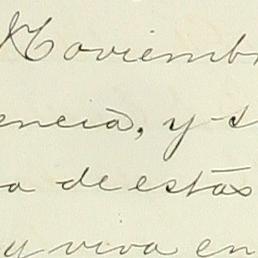 Noviembr
encia, y s
a de estas
y viva en